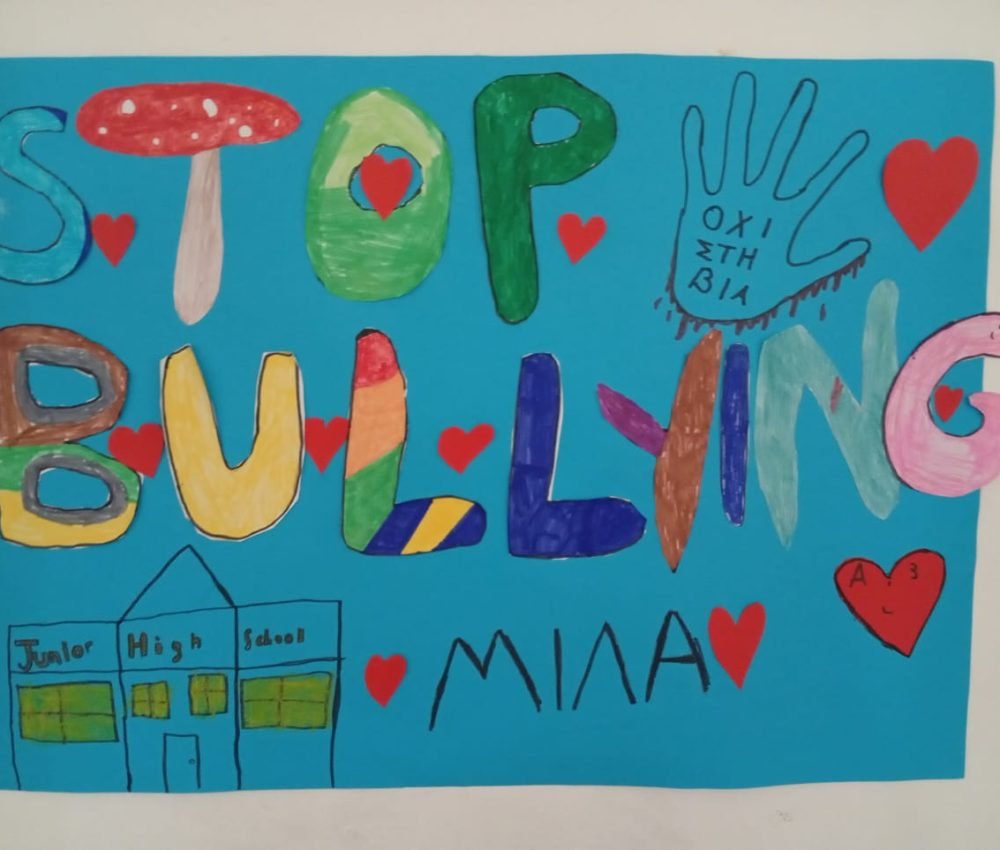 STOP
ΟΧΙ
ΣΤΗ
ΒΙΑ
BULLYING
Junior High School
ΜΙΛΑ
Α3